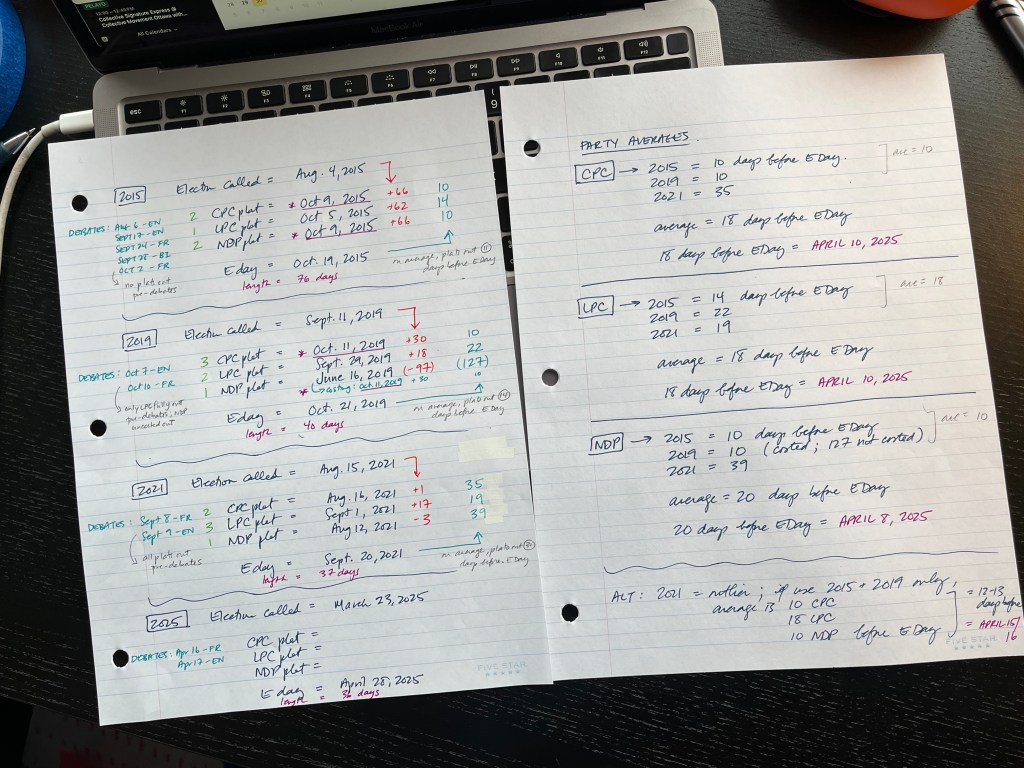 12:00 – 12:45PM
Collective Signature Express @
Collective Movement Ottawa with...
All Calendars
MacBook Air
esc
F1
F2
F3
F4
F5
F6
F7
F8
F9
F10
F11
F12
9
2015
Election called = Aug. 4, 2015
DEBATES: Aug 6 - EN
Sept 17 - EN
Sept 24 - FR
Sept 28 - BI
Oct 2 - FR
no plats out
pre-debates
2 CPC plat = * Oct 9, 2015 +66 10
1 LPC plat = Oct 5, 2015 +62 14
2 NDP plat = * Oct 9, 2015 +66 10
E day = Oct. 19, 2015
length = 76 days
on average, plats out 11
days before E Day
2019
Election called = Sept. 11, 2019
DEBATES: Oct 7 - EN
Oct 10 - FR
only LPC fully out
pre-debates; NDP
uncosted out
3 CPC plat = * Oct. 11, 2019 +30 10
2 LPC plat = Sept. 29, 2019 +18 22
1 NDP plat = June 16, 2019 (-97) (127)
* costing: Oct. 11, 2019 +30 10
E day = Oct. 21, 2019
length = 40 days
on average, plats out 14
days before E Day
2021
Election called = Aug. 15, 2021
DEBATES: Sept 8 - FR
Sept 9 - EN
all plats out
pre-debates
2 CPC plat = Aug. 16, 2021 +1 35
3 LPC plat = Sept 1, 2021 +17 19
1 NDP plat = Aug 12, 2021 -3 39
E day = Sept. 20, 2021
length = 37 days
on average, plats out
days before E Day
2025
Election called = March 23, 2025
DEBATES: Apr 16 - FR
Apr 17 - EN
CPC plat =
LPC plat =
NDP plat =
E day = April 28, 2025
length = 36 days
FIVE STAR
PARTY AVERAGES.
CPC → 2015 = 10 days before E Day. ave = 10
2019 = 10
2021 = 35
average = 18 days before E Day
18 days before E Day = APRIL 10, 2025
LPC → 2015 = 14 days before E Day ave = 18
2019 = 22
2021 = 19
average = 18 days before E Day
18 days before E Day = APRIL 10, 2025
NDP → 2015 = 10 days before E Day ave = 10
2019 = 10 (costed; 127 not costed)
2021 = 39
average = 20 days before E Day
20 days before E Day = APRIL 8, 2025
ALT: 2021 = outlier; if use 2015 + 2019 only,
average is 10 CPC
18 LPC
10 NDP before E Day
= 12-13
days before
= APRIL 15/
16
FIVE STAR